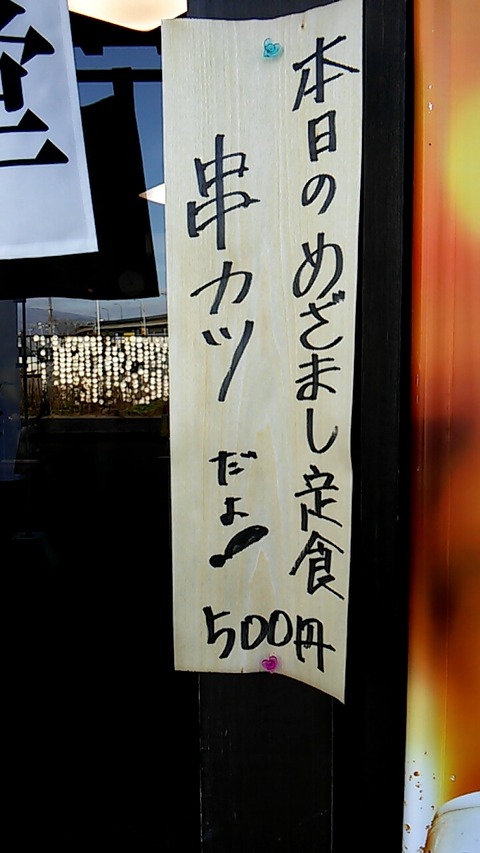 本日のめざまし定食
串カツだよ!
500円